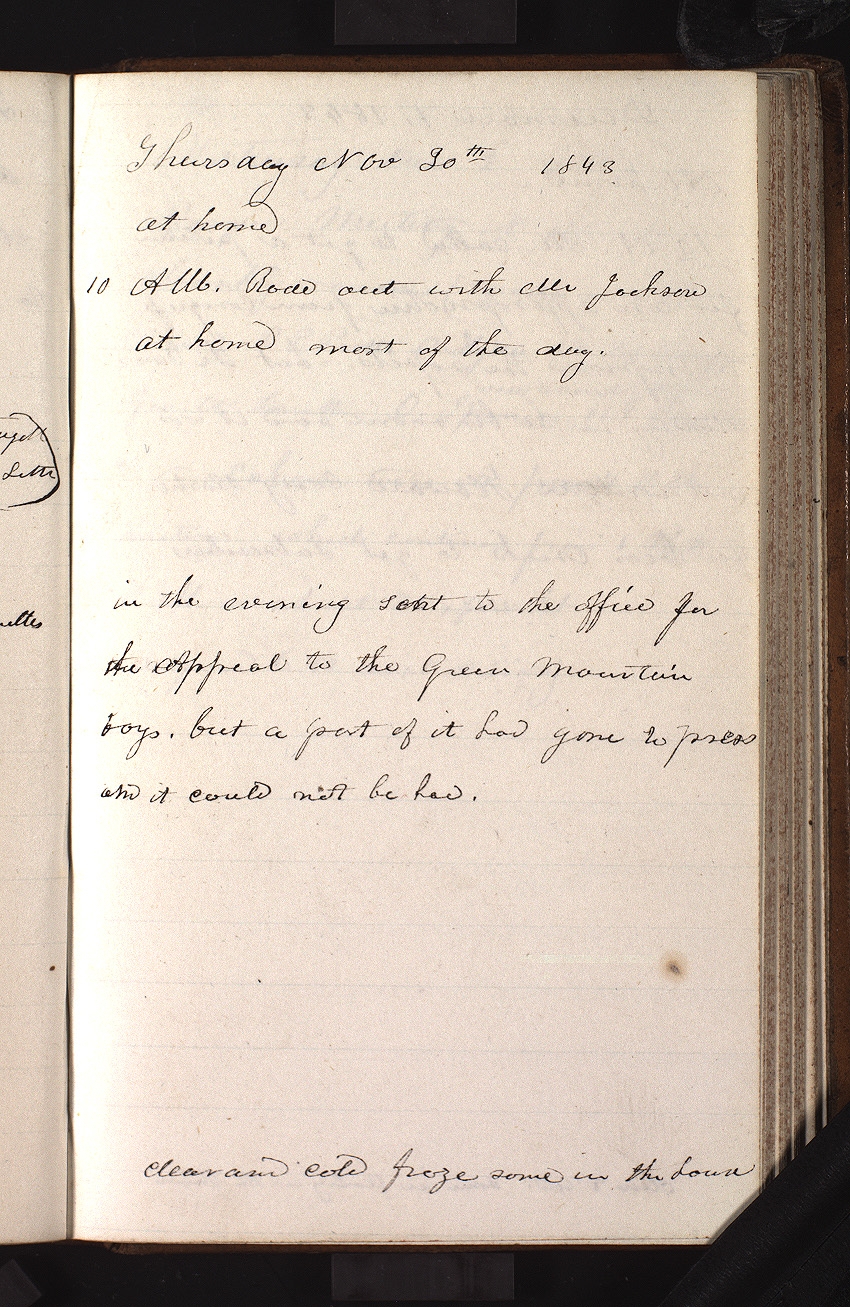 Thursday Nov 30th 1843
at home
10 A M. Rode out with Mr Jackson
at home most of the day.
Letter
in the evening sent to the office for
the Appeal to the Green Mountain
boys. but a part of it had gone to press
and it could not be had.
clear and cold froze some in the house